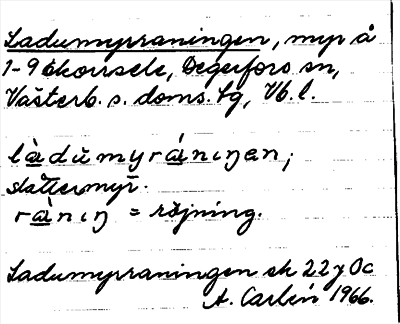 Ladumyraningen, myr å
1-9 Ekorrsele, Degerfors sn,
Västerb. s. doms. tg, Vb. l.
làdŭmyránıŋan;
slåttermyr.
rànıŋ = röjning.
Ladumyraningen ek 22 y Oc
A. Carlén 1966.